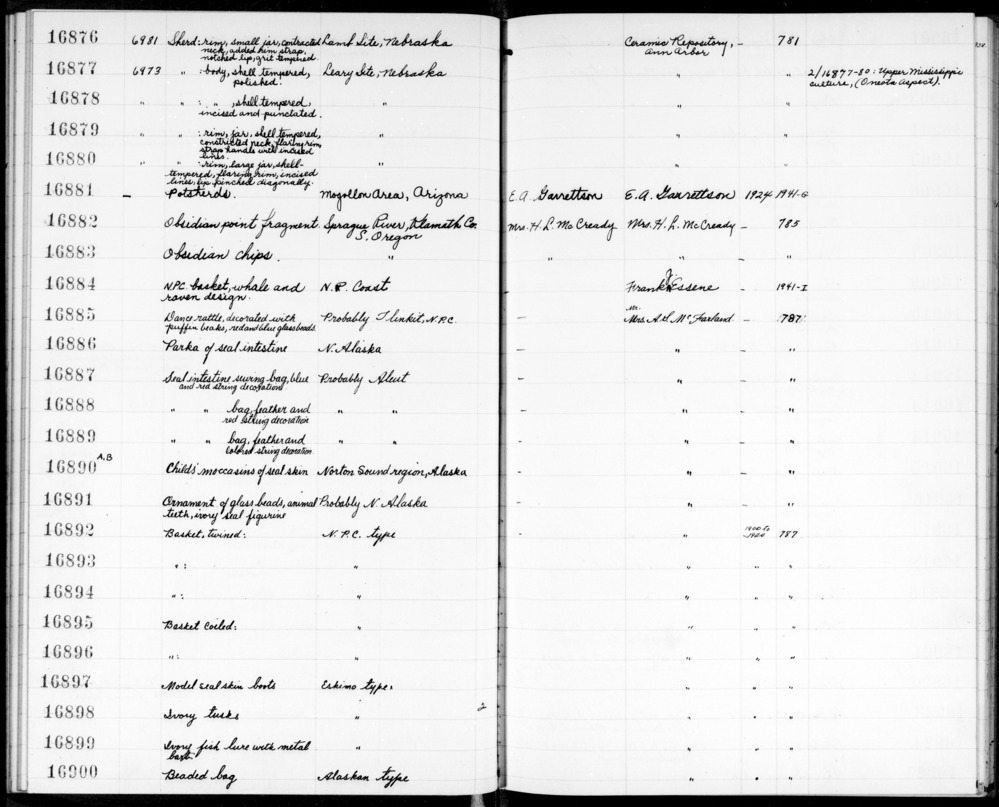 16876 6981 Sherd: rim, small jar, contracted Lamb Site, Nebraska Ceramic Repository, – 781
neck, added rim strap, Ann Arbor
notched lip, grit tempered.
16877 6973 " : body, shell tempered, Leary Site, Nebraska " " 2/16877-80: Upper Mississippi
polished. culture, (Oneota Aspect).
16878 " " : " , shell tempered, " " "
incised and punctated.
16879 " " : rim, jar, shell tempered, " " "
constricted neck, flaring rim,
strap handle with incised
lines.
16880 " " : rim, large jar, shell- " " "
tempered, flaring rim, incised
lines, lip pinched diagonally.
16881 – Potsherds. Mogollon Area, Arizona E.A. Garrettson E.A. Garrettson 1924 1941-G
16882 Obsidian point fragment. Sprague River, Klamath Co. Mrs. H. L. McCready Mrs. H. L. McCready – 785
S. Oregon
16883 Obsidian chips. " " " – "
16884 N.P.C. basket, whale and N.P. Coast Frank Essene – 1941-I
raven design.
16885 Dance rattle, decorated with Probably Tlinkit, N.P.C. – Mrs. A.S. McFarland – 787
puffin beaks, red and blue glass beads.
16886 Parka of seal intestine N. Alaska – " – "
16887 Seal intestine sewing bag, blue Probably Aleut – " – "
and red string decoration
16888 " " bag, feather and " " – " – "
red string decoration
16889 " " bag, feather and " " – " – "
colored string decoration
16890 A,B Childs' moccasins of seal skin Norton Sound region, Alaska – " – "
16891 Ornament of glass beads, animal Probably N. Alaska – " – "
teeth, ivory seal figurine
16892 Basket, twined: N.P.C. type – " 1900 to 787
1920
16893 " : " " " "
16894 " : " " " "
16895 Basket coiled: " " " "
16896 " : " " " "
16897 Model sealskin boots Eskimo type: " " "
16898 Ivory tusks " 2 " " "
16899 Ivory fish lure with metal " " " "
16900 Beaded bag Alaskan type " " "